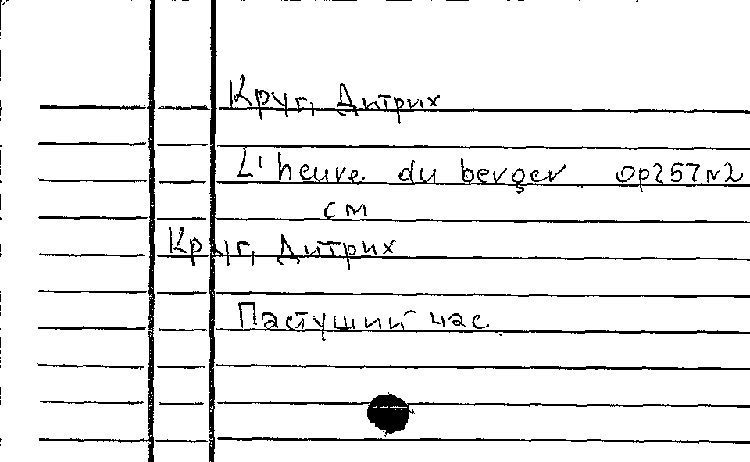 Круг, Дитрих
L'heure du berger op257N2
см
Круг, Дитрих
Пастуший час.